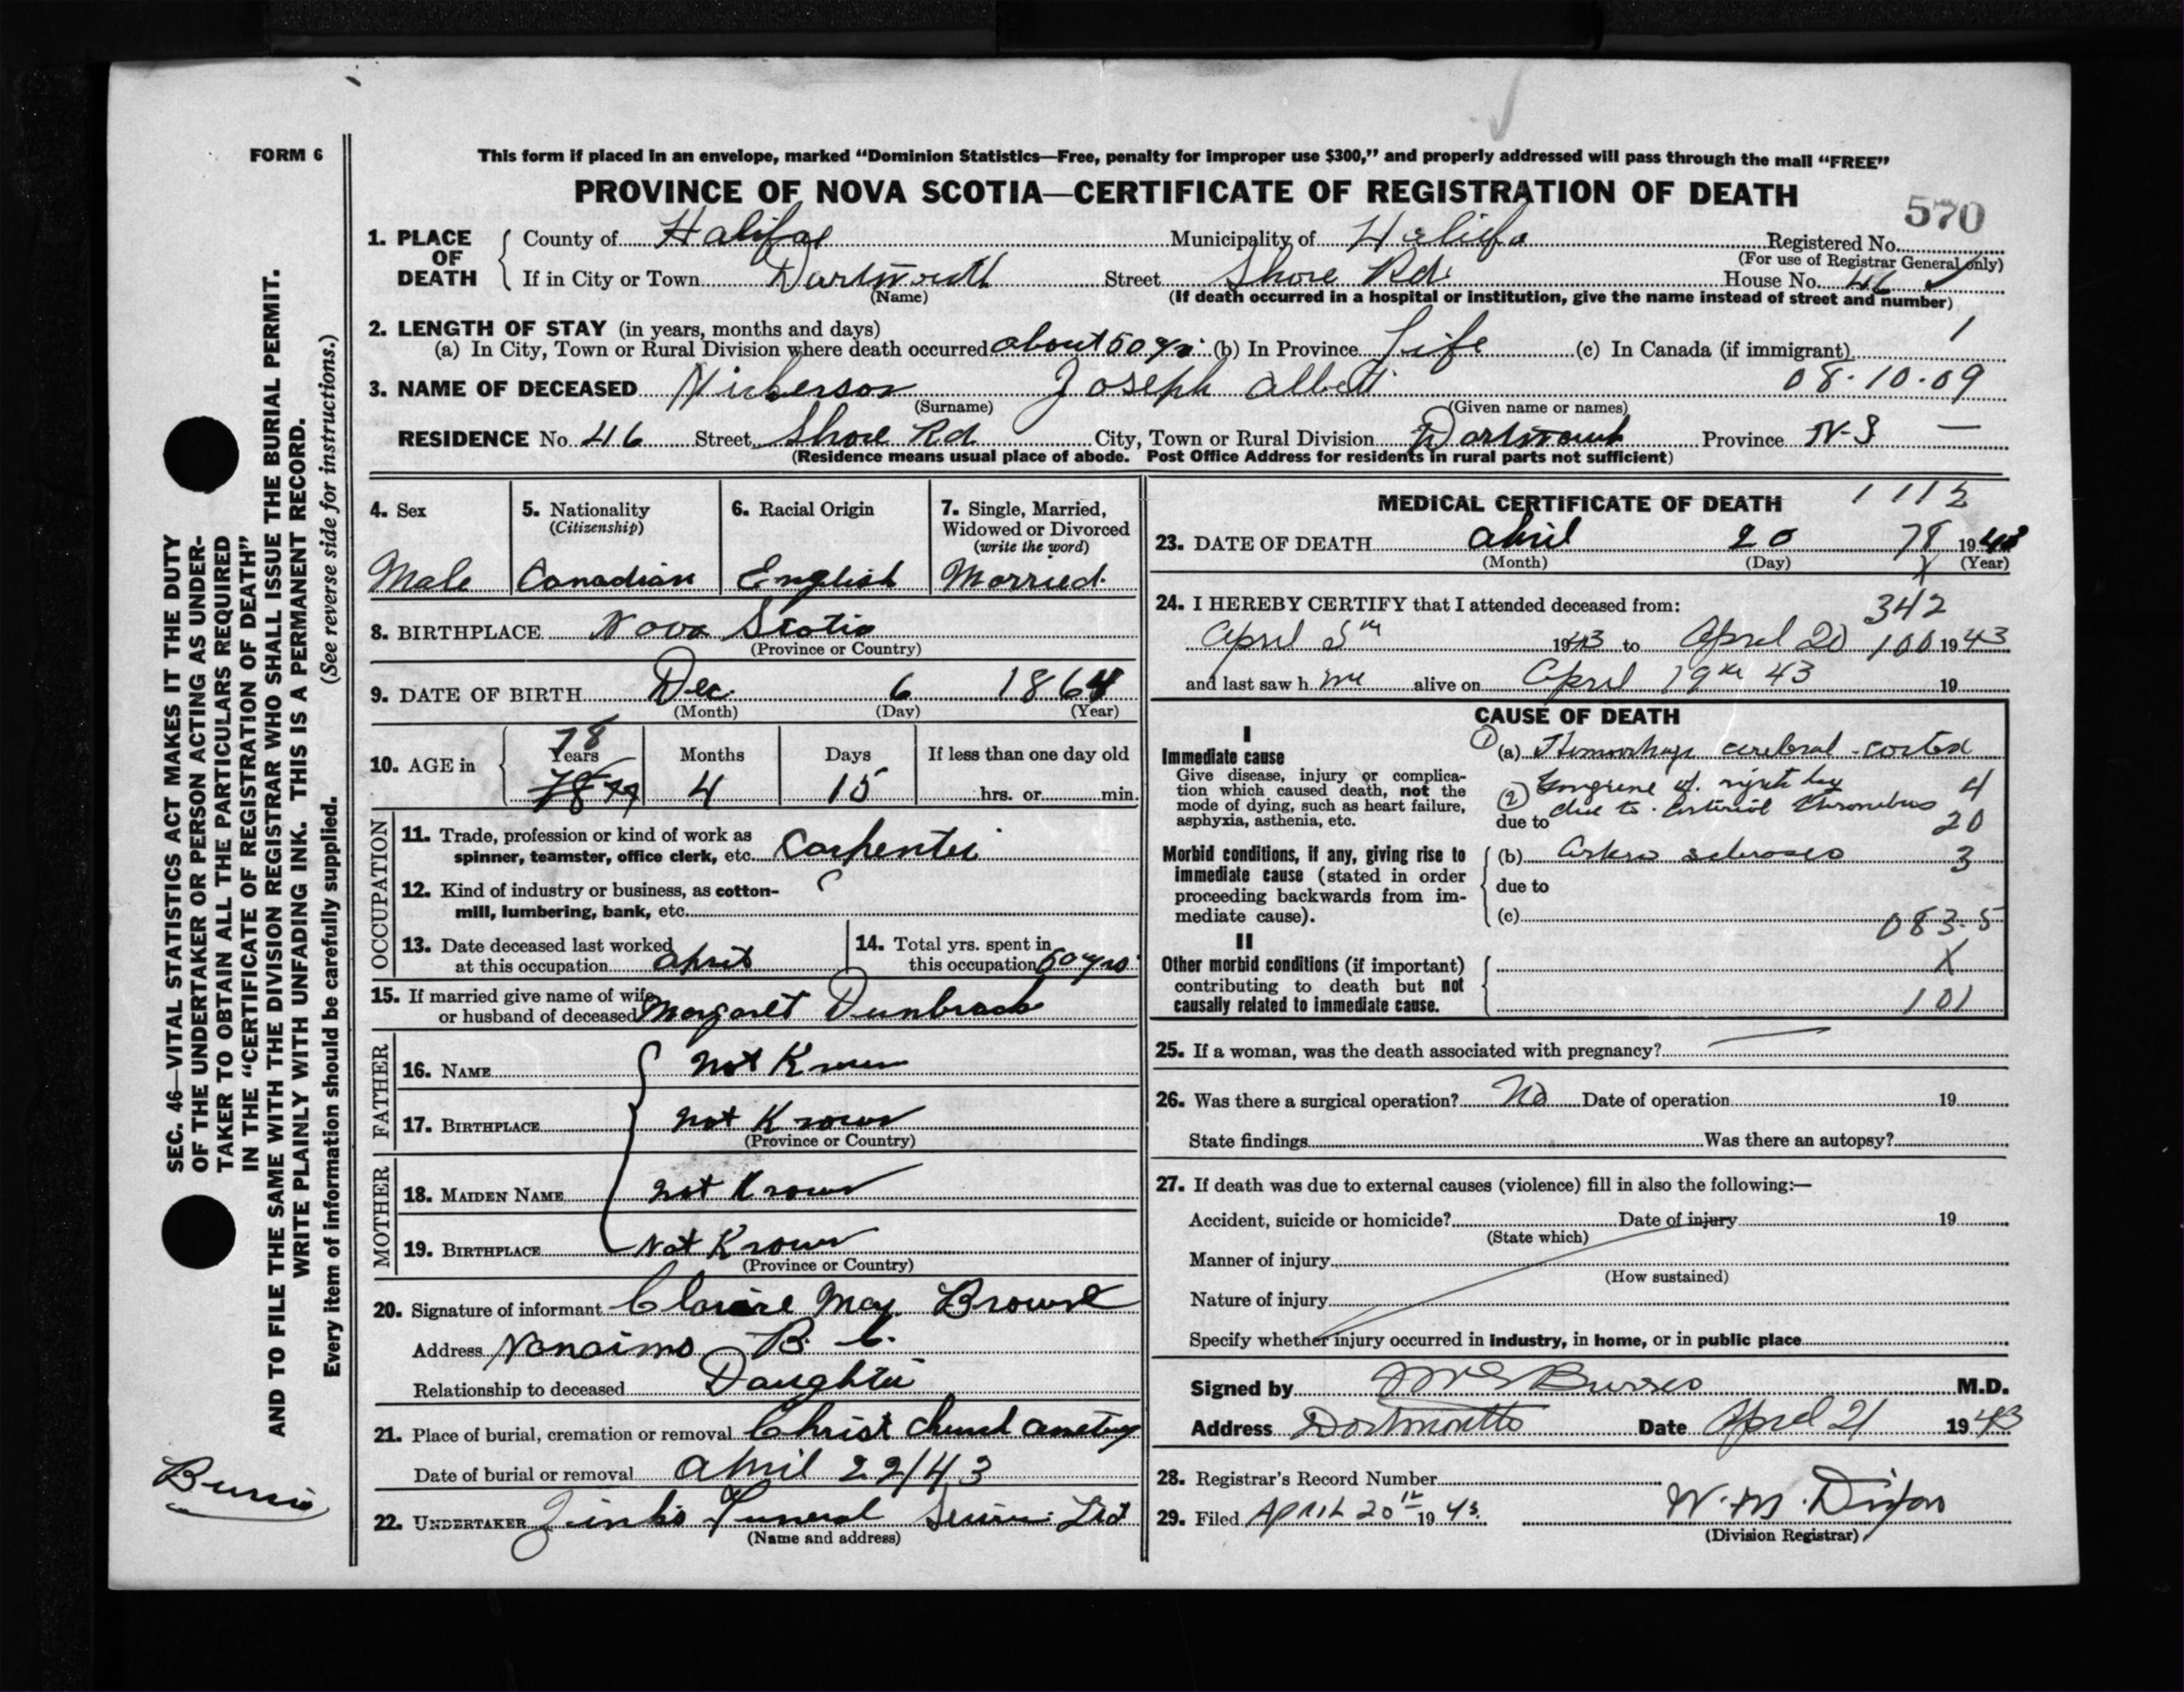 FORM 6
This form if placed in an envelope, marked “Dominion Statistics—Free, penalty for improper use $300,” and properly addressed will pass through the mail “FREE”
PROVINCE OF NOVA SCOTIA—CERTIFICATE OF REGISTRATION OF DEATH
570
1. PLACE OF DEATH
County of Halifax Municipality of Halifa Registered No.
(For use of Registrar General only)
If in City or Town Dartmouth Street Shore Rd. House No. 46
(Name) (If death occurred in a hospital or institution, give the name instead of street and number)
2. LENGTH OF STAY (in years, months and days) 1
(a) In City, Town or Rural Division where death occurred about 50 yrs. (b) In Province Life (c) In Canada (if immigrant)
3. NAME OF DECEASED Nickerson Joseph Albert 08-10-09
(Surname) (Given name or names)
RESIDENCE No 46 Street Shore Rd City, Town or Rural Division Dartmouth Province N-S —
(Residence means usual place of abode. Post Office Address for residents in rural parts not sufficient)
4. Sex
Male
5. Nationality
(Citizenship)
Canadian
6. Racial Origin
English
7. Single, Married,
Widowed or Divorced
(write the word)
Married.
8. BIRTHPLACE Nova Scotia
(Province or Country)
9. DATE OF BIRTH Dec. 6 1864
(Month) (Day) (Year)
10. AGE in
78
Years Months Days If less than one day old
78 4 15 hrs. or min.
OCCUPATION
11. Trade, profession or kind of work as
spinner, teamster, office clerk, etc. Carpenter
12. Kind of industry or business, as cotton-
mill, lumbering, bank, etc.
13. Date deceased last worked
at this occupation April
14. Total yrs. spent in
this occupation 50 yrs.
15. If married give name of wife
or husband of deceased Margaret Dunbrack
FATHER
16. NAME Not Known
17. BIRTHPLACE Not Known
(Province or Country)
MOTHER
18. MAIDEN NAME Not Known
19. BIRTHPLACE Not Known
(Province or Country)
20. Signature of informant Claire May Browne
Address Nanaimo B. C.
Relationship to deceased Daughter
21. Place of burial, cremation or removal Christ Church Cemetery
Date of burial or removal April 22/43
22. UNDERTAKER Zinks Funeral Service Ltd
(Name and address)
MEDICAL CERTIFICATE OF DEATH 1112
23. DATE OF DEATH April 20 78 1943
(Month) (Day) (Year)
24. I HEREBY CERTIFY that I attended deceased from: 342
April 5th 1943 to April 20 100 1943
and last saw h im alive on April 19th 43 19
CAUSE OF DEATH
I
Immediate cause
Give disease, injury or complica-
tion which caused death, not the
mode of dying, such as heart failure,
asphyxia, asthenia, etc.
(1) (a) Hemorrhage cerebral - cortex
(2) Gangrene of right leg 4
due to due to arterial thrombus 20
Morbid conditions, if any, giving rise to
immediate cause (stated in order
proceeding backwards from im-
mediate cause).
(b) Arterio sclerosis 3
due to
(c) 083.5
II
Other morbid conditions (if important)
contributing to death but not
causally related to immediate cause.
X
101
25. If a woman, was the death associated with pregnancy?
26. Was there a surgical operation? No Date of operation 19
State findings Was there an autopsy?
27. If death was due to external causes (violence) fill in also the following:—
Accident, suicide or homicide? Date of injury 19
(State which)
Manner of injury
(How sustained)
Nature of injury
Specify whether injury occurred in industry, in home, or in public place
Signed by Burris M.D.
Address Dartmouth Date April 21 1943
28. Registrar's Record Number
29. Filed APRIL 20th 1943. W. M. Dixon
(Division Registrar)
SEC. 46—VITAL STATISTICS ACT MAKES IT THE DUTY
OF THE UNDERTAKER OR PERSON ACTING AS UNDER-
TAKER TO OBTAIN ALL THE PARTICULARS REQUIRED
IN THE “CERTIFICATE OF REGISTRATION OF DEATH”
AND TO FILE THE SAME WITH THE DIVISION REGISTRAR WHO SHALL ISSUE THE BURIAL PERMIT.
WRITE PLAINLY WITH UNFADING INK. THIS IS A PERMANENT RECORD.
Every item of information should be carefully supplied. (See reverse side for instructions.)
Burris